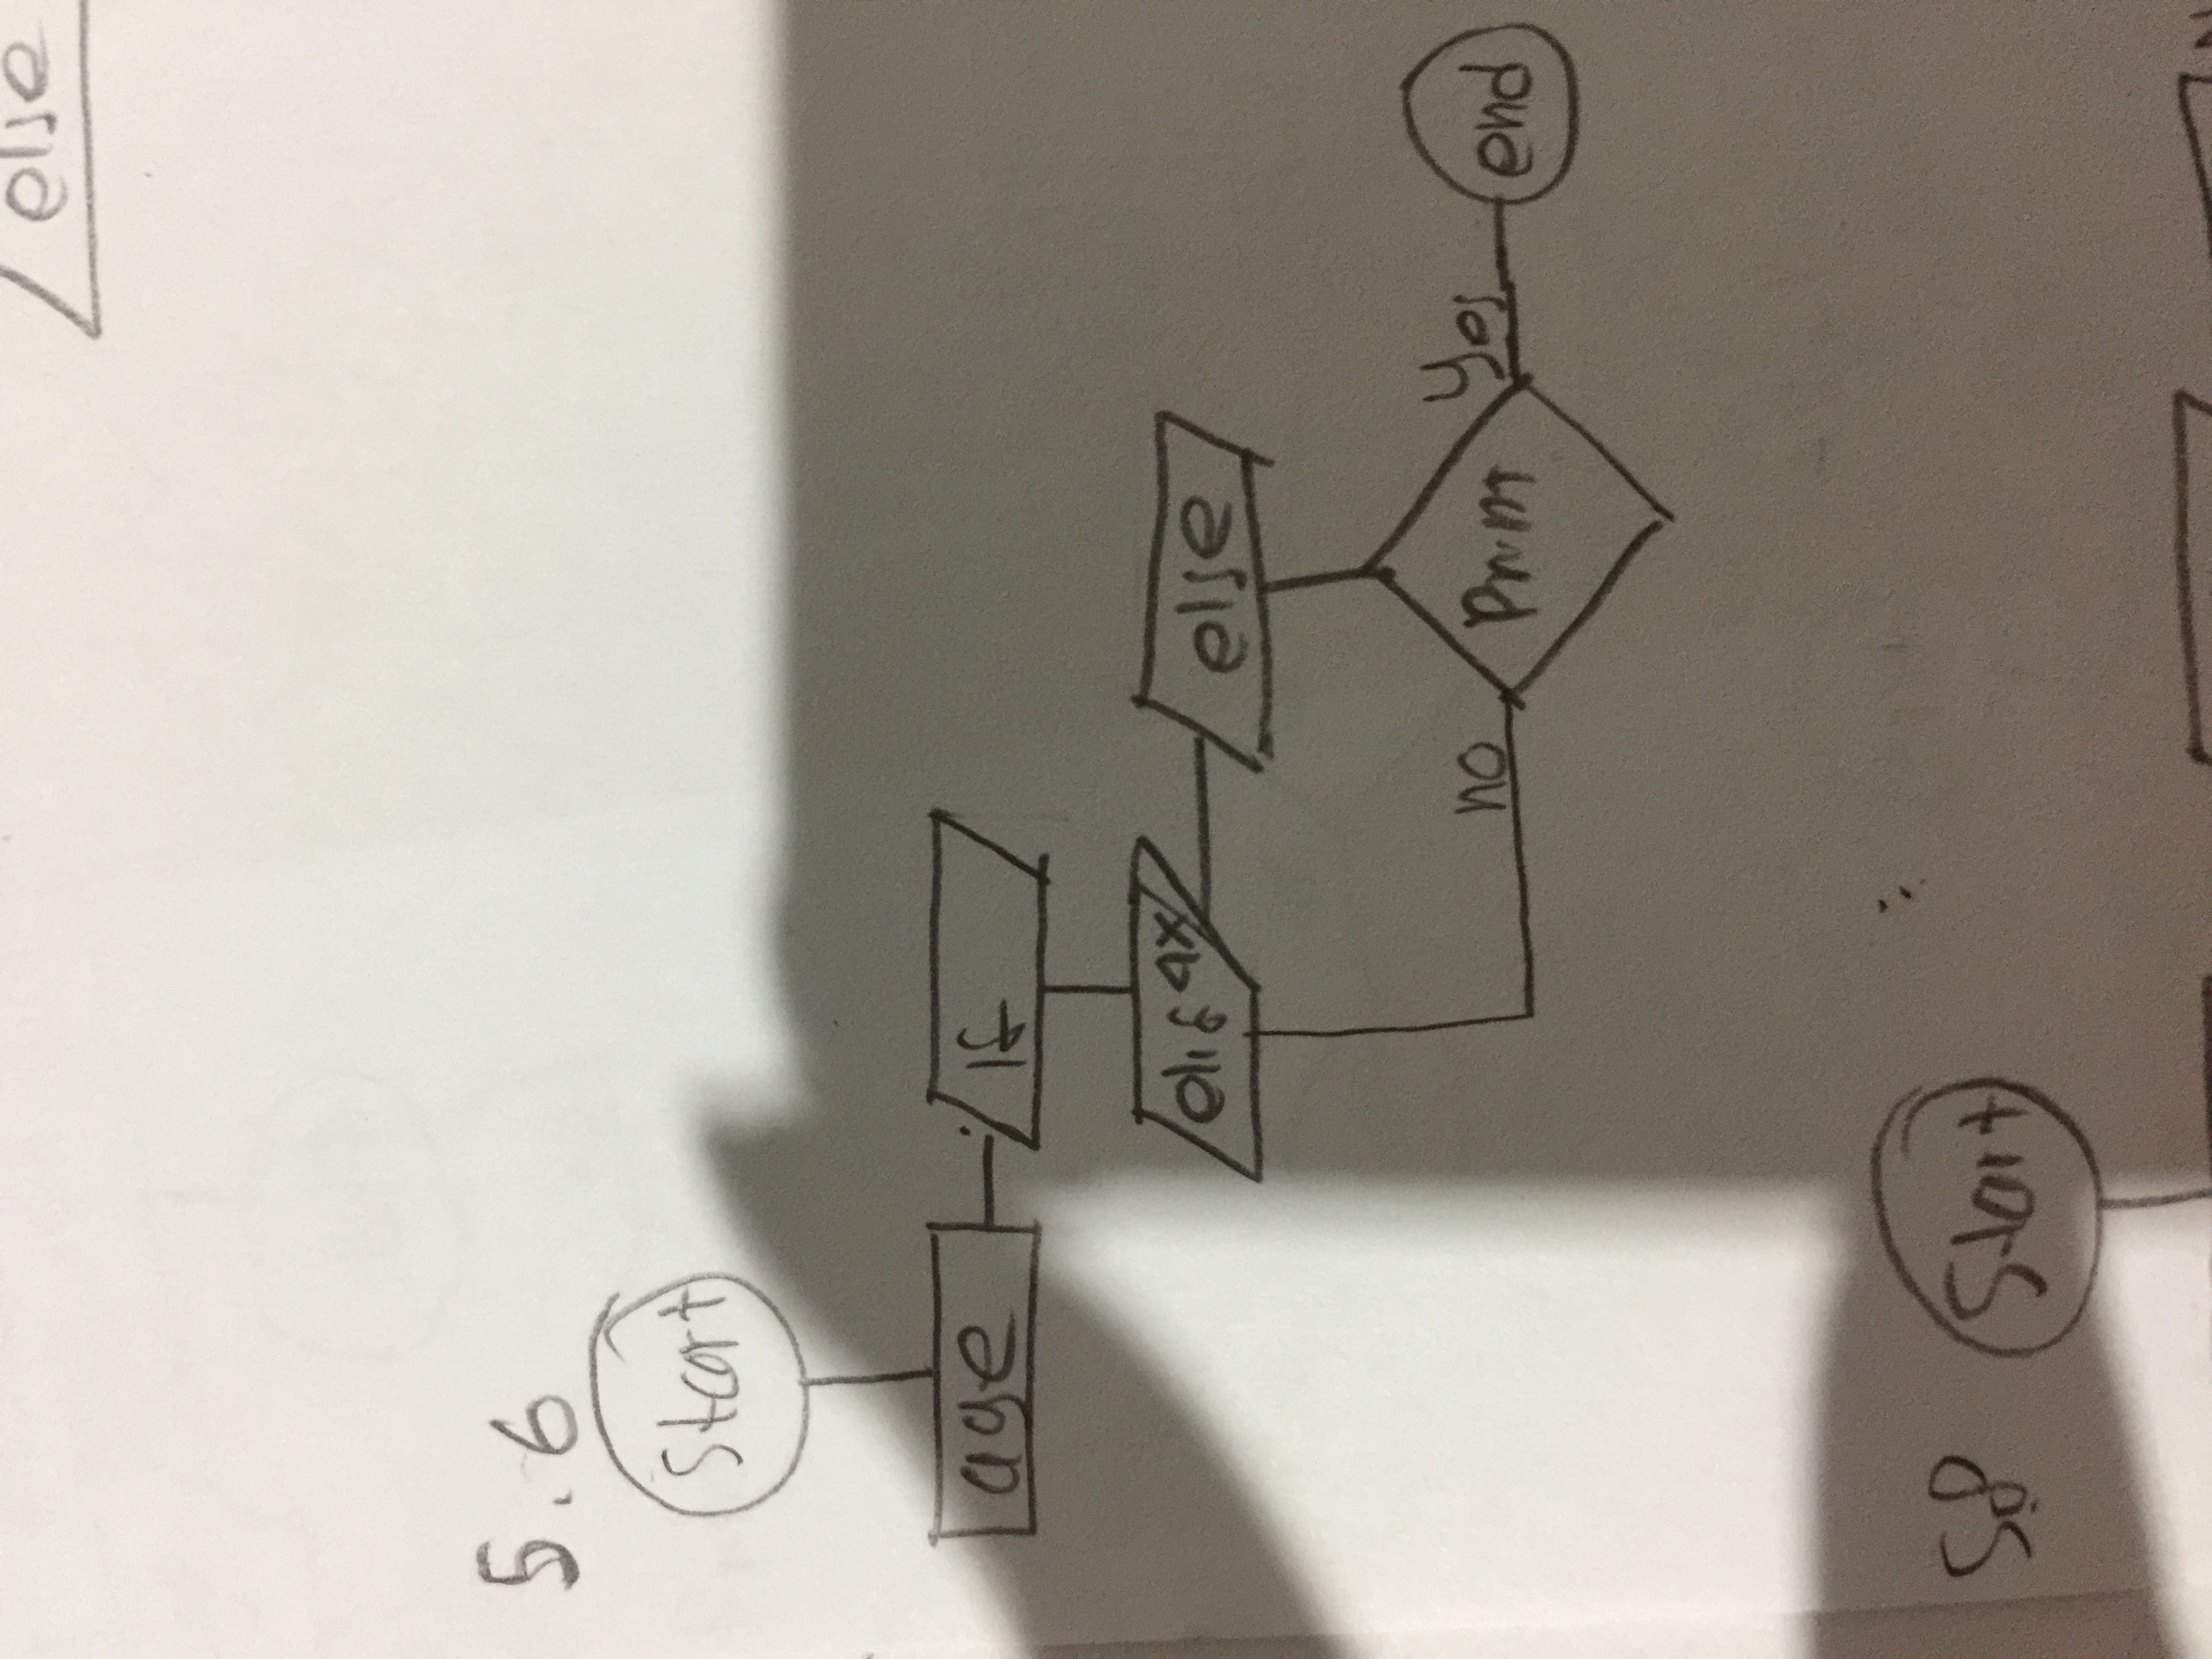 else
5.6
Start
age
If
elif 4x
else
no
Print
yes
end
5.8
Start